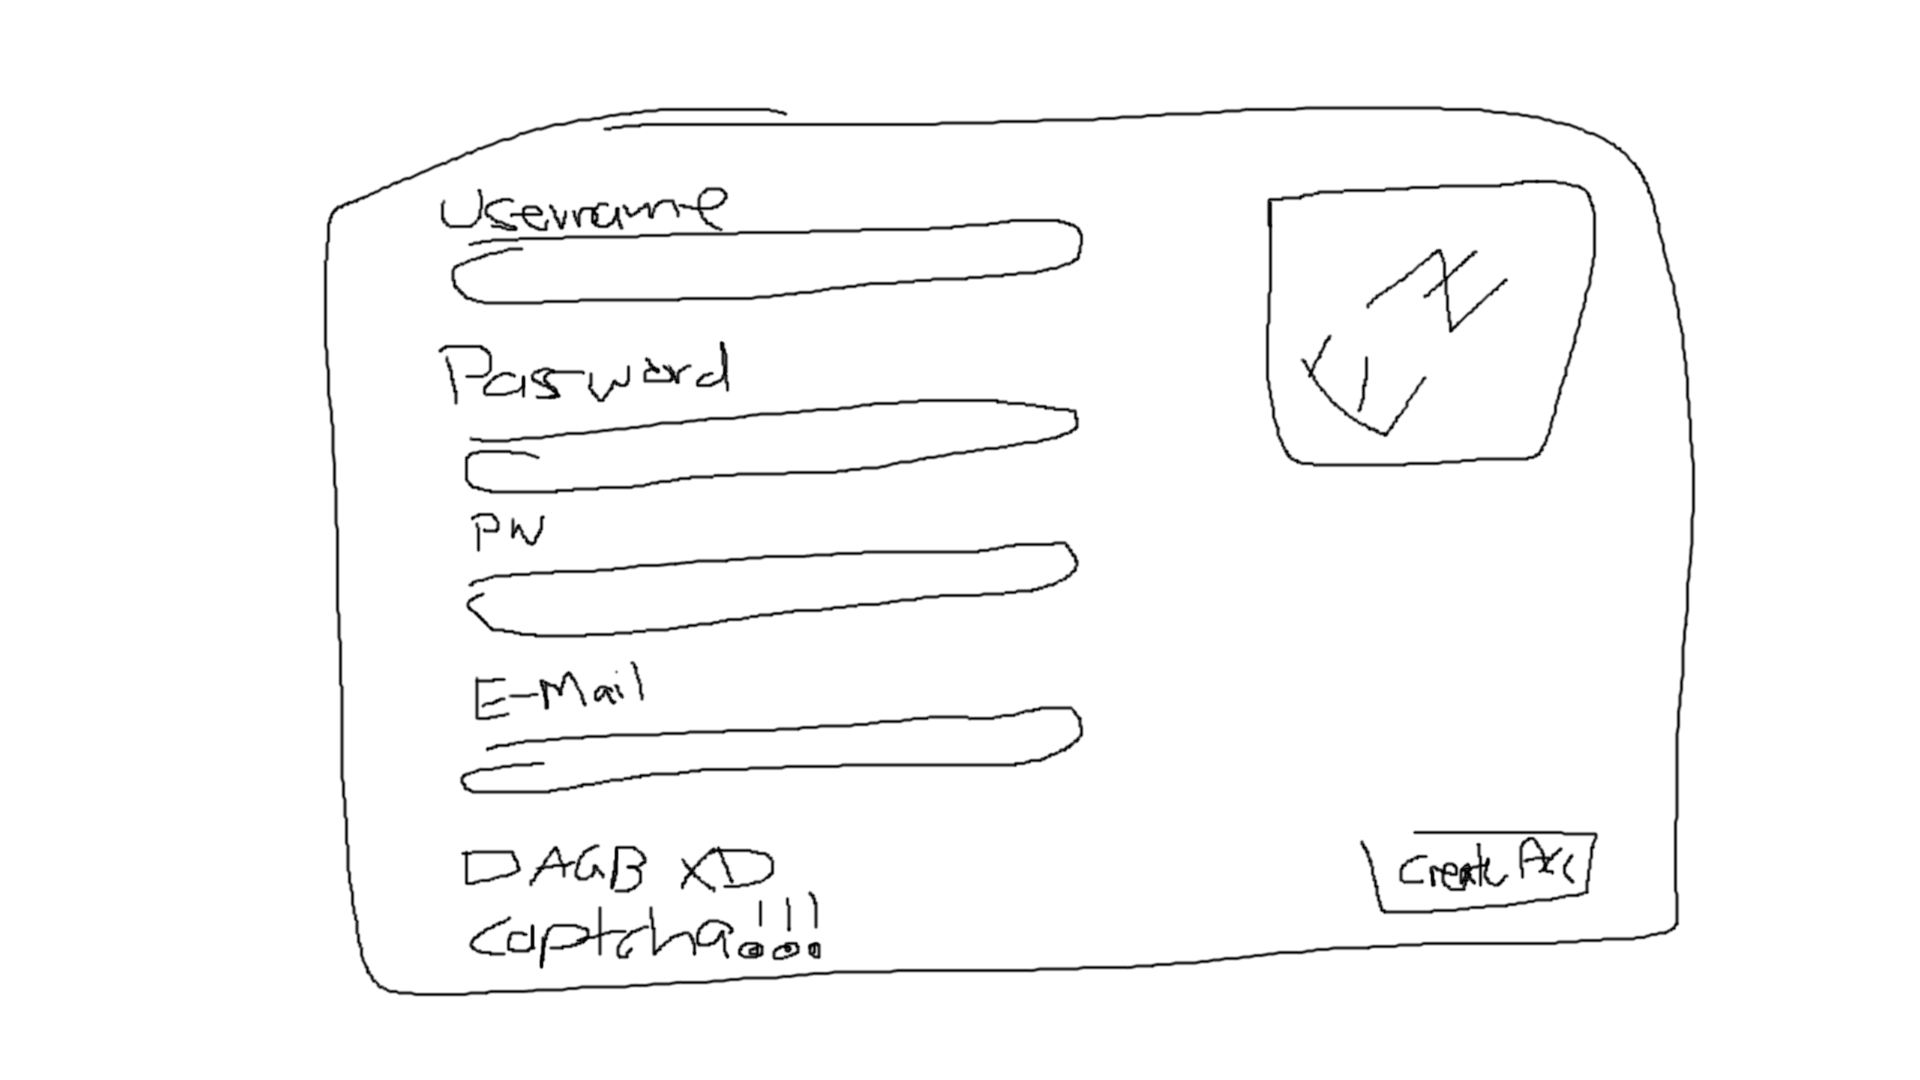 Username
Password
PW
E-Mail
AGB XD
Captcha!!!
Create Acc